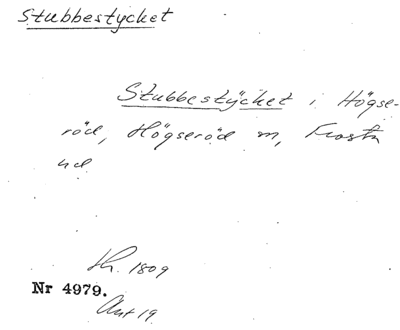 Stubbestycket
Stubbestycket i Högse-
röd, Högseröd sn, Frosta
hd
Lh. 1809
Nr 4979.
Akt 19